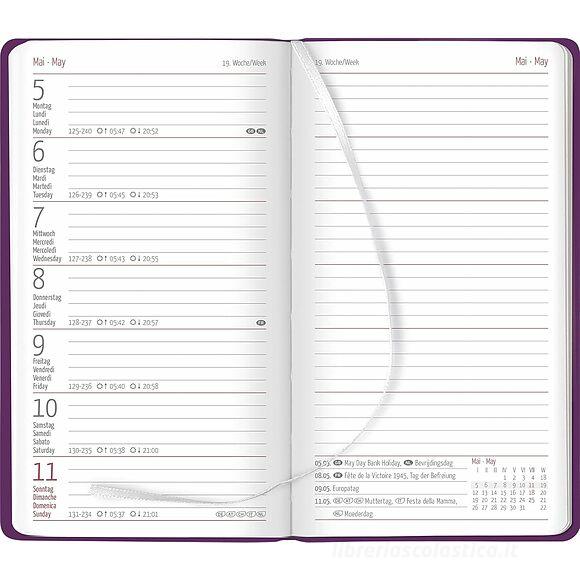 Mai · May 19. Woche/Week
5
Montag
Lundi
Lunedì
Monday 125-240 05:47 20:52 GB NL
6
Dienstag
Mardi
Martedì
Tuesday 126-239 05:45 20:53
7
Mittwoch
Mercredi
Mercoledì
Wednesday 127-238 05:43 20:55
8
Donnerstag
Jeudi
Giovedì
Thursday 128-237 05:42 20:57 FR
9
Freitag
Vendredi
Venerdì
Friday 129-236 05:40 20:58
10
Samstag
Samedi
Sabato
Saturday 130-235 05:38 21:00
11
Sonntag
Dimanche
Domenica
Sunday 131-234 05:37 21:01 DE AT CH IT NL
19. Woche/Week Mai · May
05.05. GB May Day Bank Holiday, NL Bevrijdingsdag
08.05. FR Fête de la Victoire 1945, Tag der Befreiung
09.05. Europatag
11.05. DE AT CH Muttertag, IT Festa della Mamma,
NL Moederdag
Mai · May
18 19 20 21 22
libreriascolastica.it